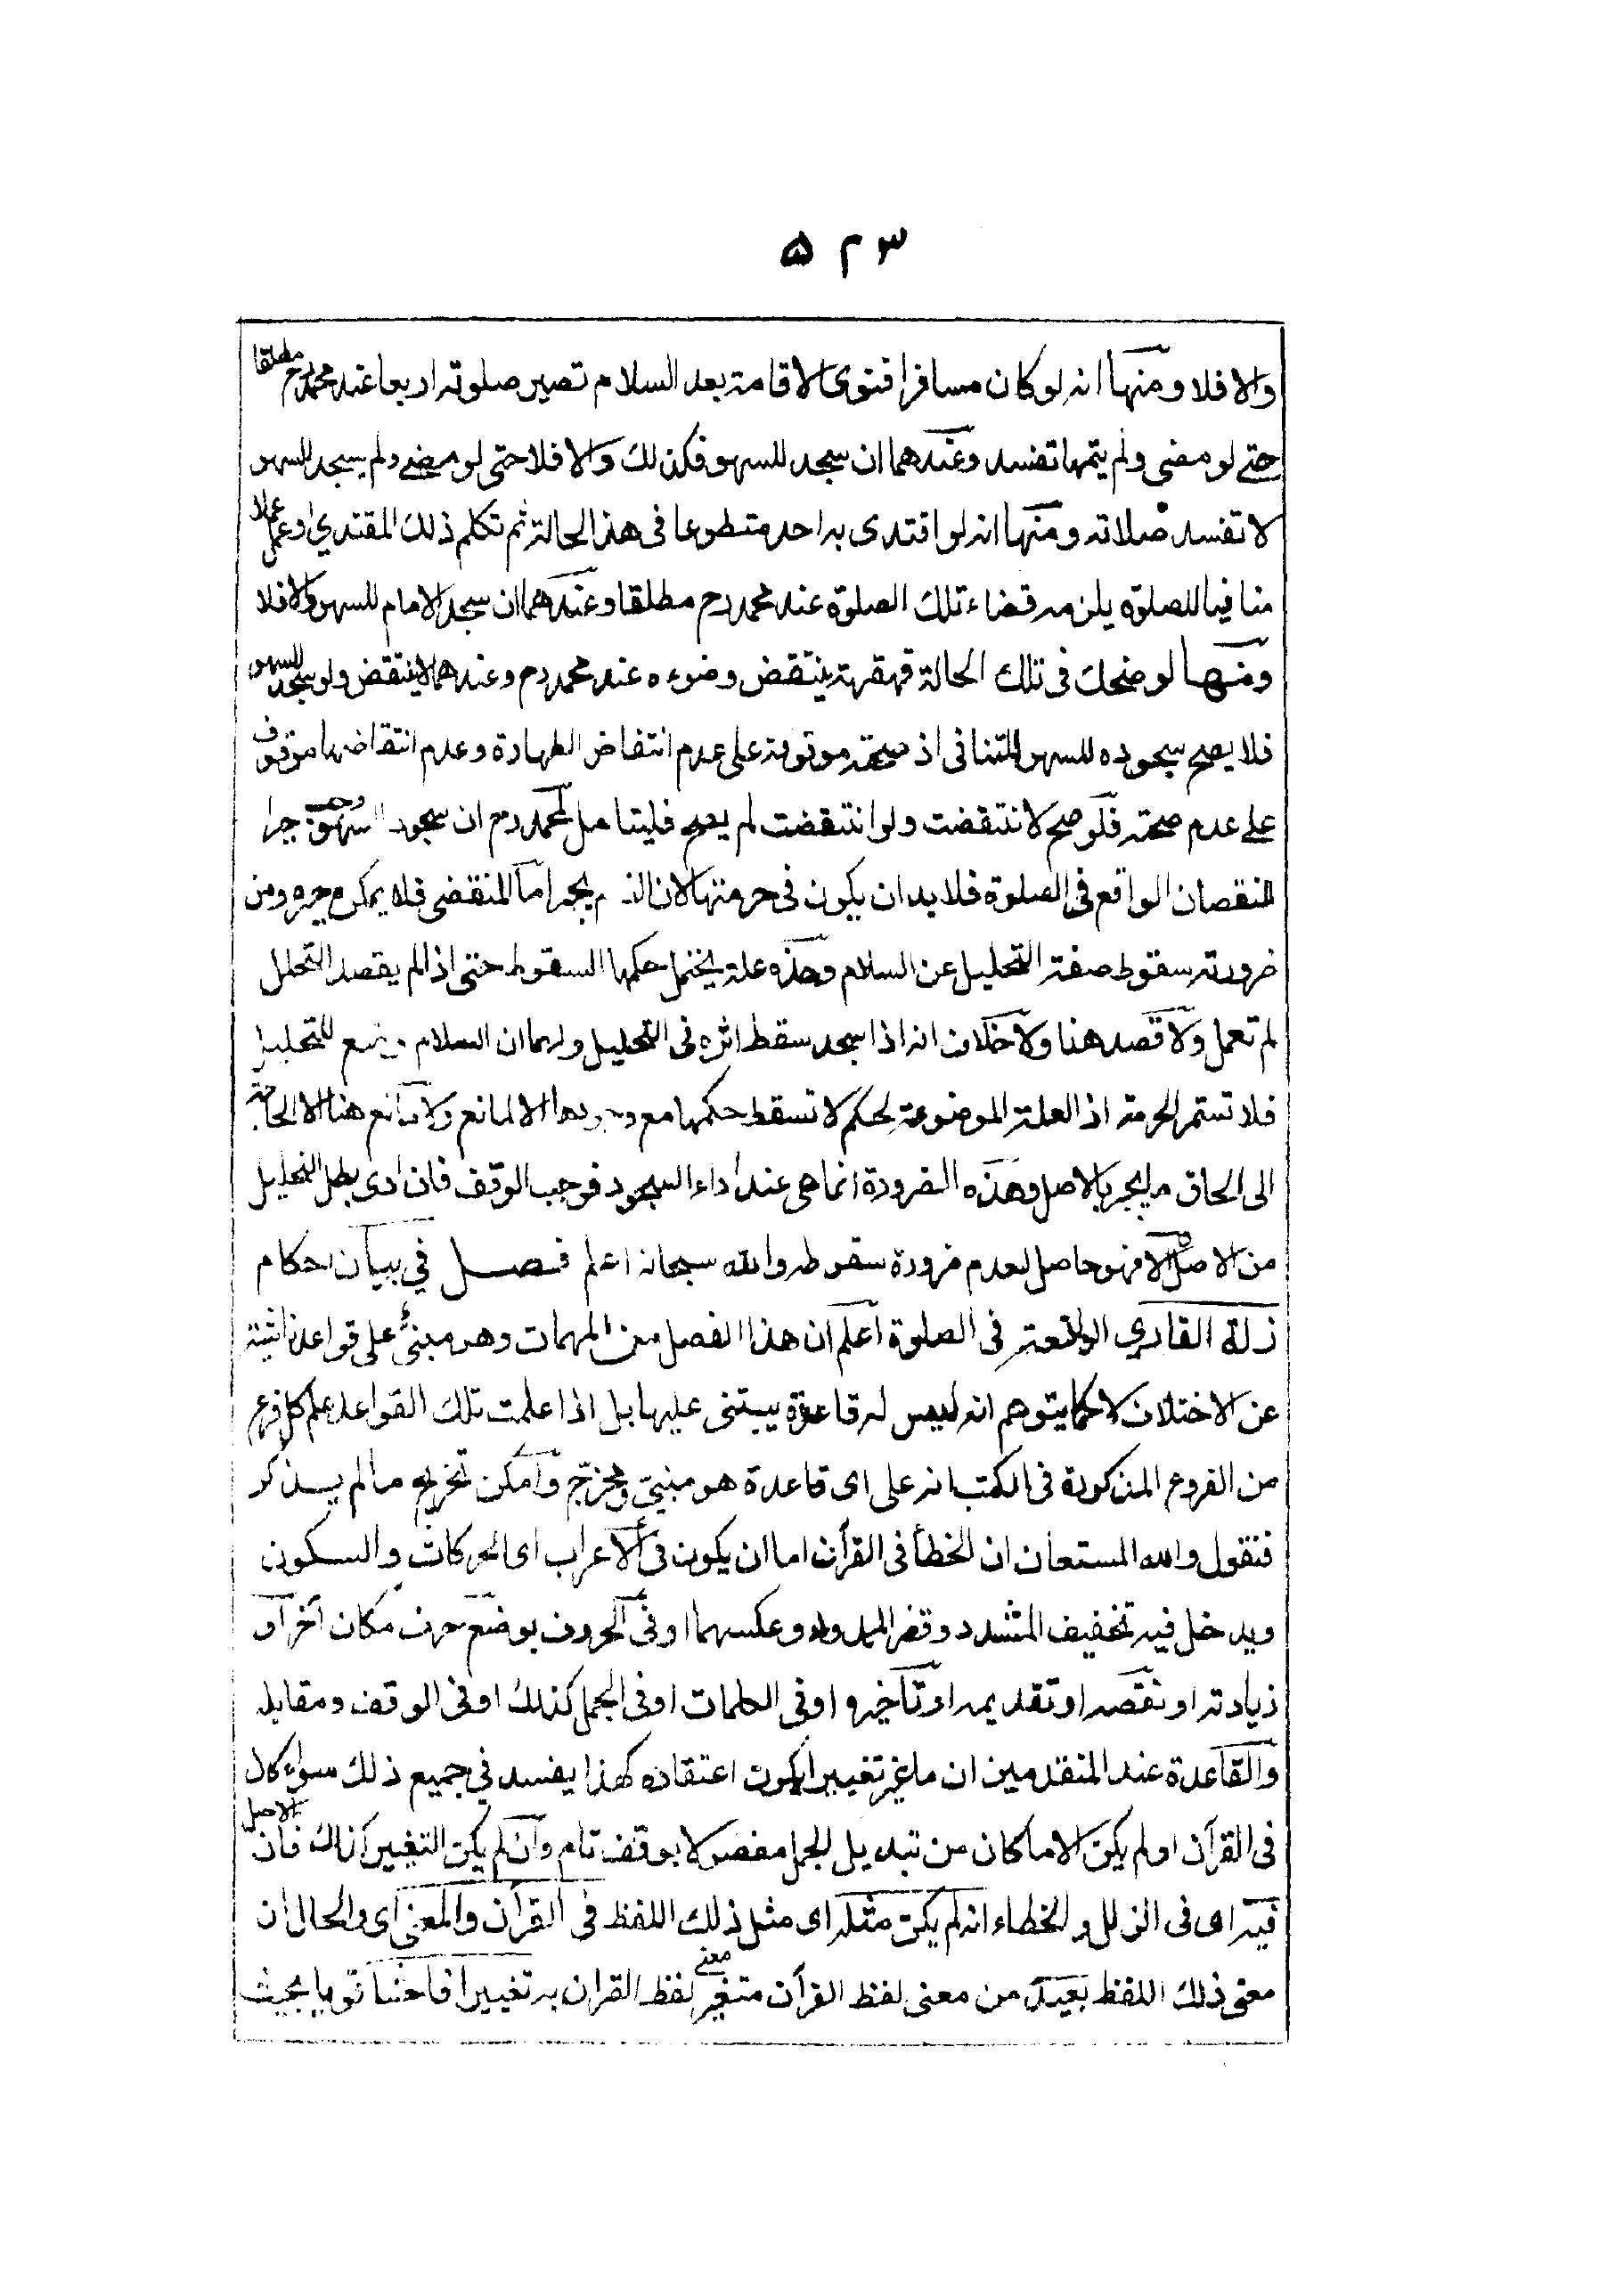 ٥٢٣
والا فلا ومنها انه لو كان مسافرا فنوى الاقامة بعد السلام تصير صلوته اربعا عند محمد رح مطلقا
حتى لو مضى ولم يتمها تفسد وعندهما ان سجد للسهو فكذلك والا فلا حتى لو مضى ولم يسجد للسهو
لا تفسد صلاته ومنها انه لو اقتدى به احد متطوعا فى هذه الحالة ثم تكلم ذلك المقتدي او عمل عملا
منافيا للصلوة يلزمه قضاء تلك الصلوة عند محمد رح مطلقا وعندهما ان سجد الامام للسهو والا فلا
ومنها لو ضحك فى تلك الحالة قهقهة ينتقض وضوءه عند محمد رح وعندهما لا ينتقض ولو سجد للسهو
فلا يصح سجوده للسهو للتنافى اذ صحته موقوفة على عدم انتقاض الطهارة وعدم انتقاضها موقوف
على عدم صحته فلو صح لانتقضت ولو انتقضت لم يصح فليتامل لمحمد رح ان سجود السهو وجب جبرا
للنقصان الواقع فى الصلوة فلا بد ان يكون فى حرمتها لان الذى يجبر اما المنقضى فلا يمكن جبره ومن
ضرورته سقوط صفة التحليل عن السلام وهذه علة يحتمل حكمها السقوط حتى اذا لم يقصد التحلل
لم تعمل ولا قصد هنا ولا خلاف انه اذا سجد سقط اثره فى التحليل ولهما ان السلام وضع للتحليل
فلا تستمر الحرمة اذ العلة الموضوعة لحكم لا تسقط حكمها مع وجودها الا لمانع ولا مانع هنا الا الحاجة
الى الحاق ما يجبر بالاصل وهذه الضرورة انما هى عند اداء السجود فوجب الوقف فان ادى بطل التحليل
من الاصل والا فهو حاصل لعدم ضرورة سقوطه والله سبحانه اعلم فصل في بيان احكام
زلة القاري الواقعة فى الصلوة اعلم ان هذا الفصل من المهمات وهو مبنئ على قواعد ناشئة
عن الاختلاف لا كما يتوهم انه ليس له قاعدة يبتنى عليها بل اذا علمت تلك القواعد علم كل فرع
من الفروع المذكورة فى الكتب انه على اى قاعدة هو مبنىّ ومخرّج وامكن تخريج ما لم يذكر
فنقول والله المستعان ان الخطأ فى القرآن اما ان يكون فى الاعراب اى الحركات والسكون
ويدخل فيه تخفيف المشدد وقصر الممدود وعكسهما او فى الحروف بوضع حرف مكان آخر او
زيادته او نقصه او تقديمه او تأخيره او فى الكلمات او فى الجمل كذلك او فى الوقف ومقابله
والقاعدة عند المتقدمين ان ما غير تغييرا يكون اعتقاده كفرا يفسد في جميع ذلك سواء كان
فى القرآن او لم يكن الا ما كان من تبديل الجمل مفصولا بوقف تام وان لم يكن التغيير كذلك فان الاصل
فيه اى فى الزلل والخطاء انه لم يكن مثله اى مثل ذلك اللفظ فى القرآن والمعنى اى والحال ان
معنى ذلك اللفظ بعيد من معنى لفظ القرآن متغير معنى لفظ القران به تغييرا فاحشا قويا بحيث